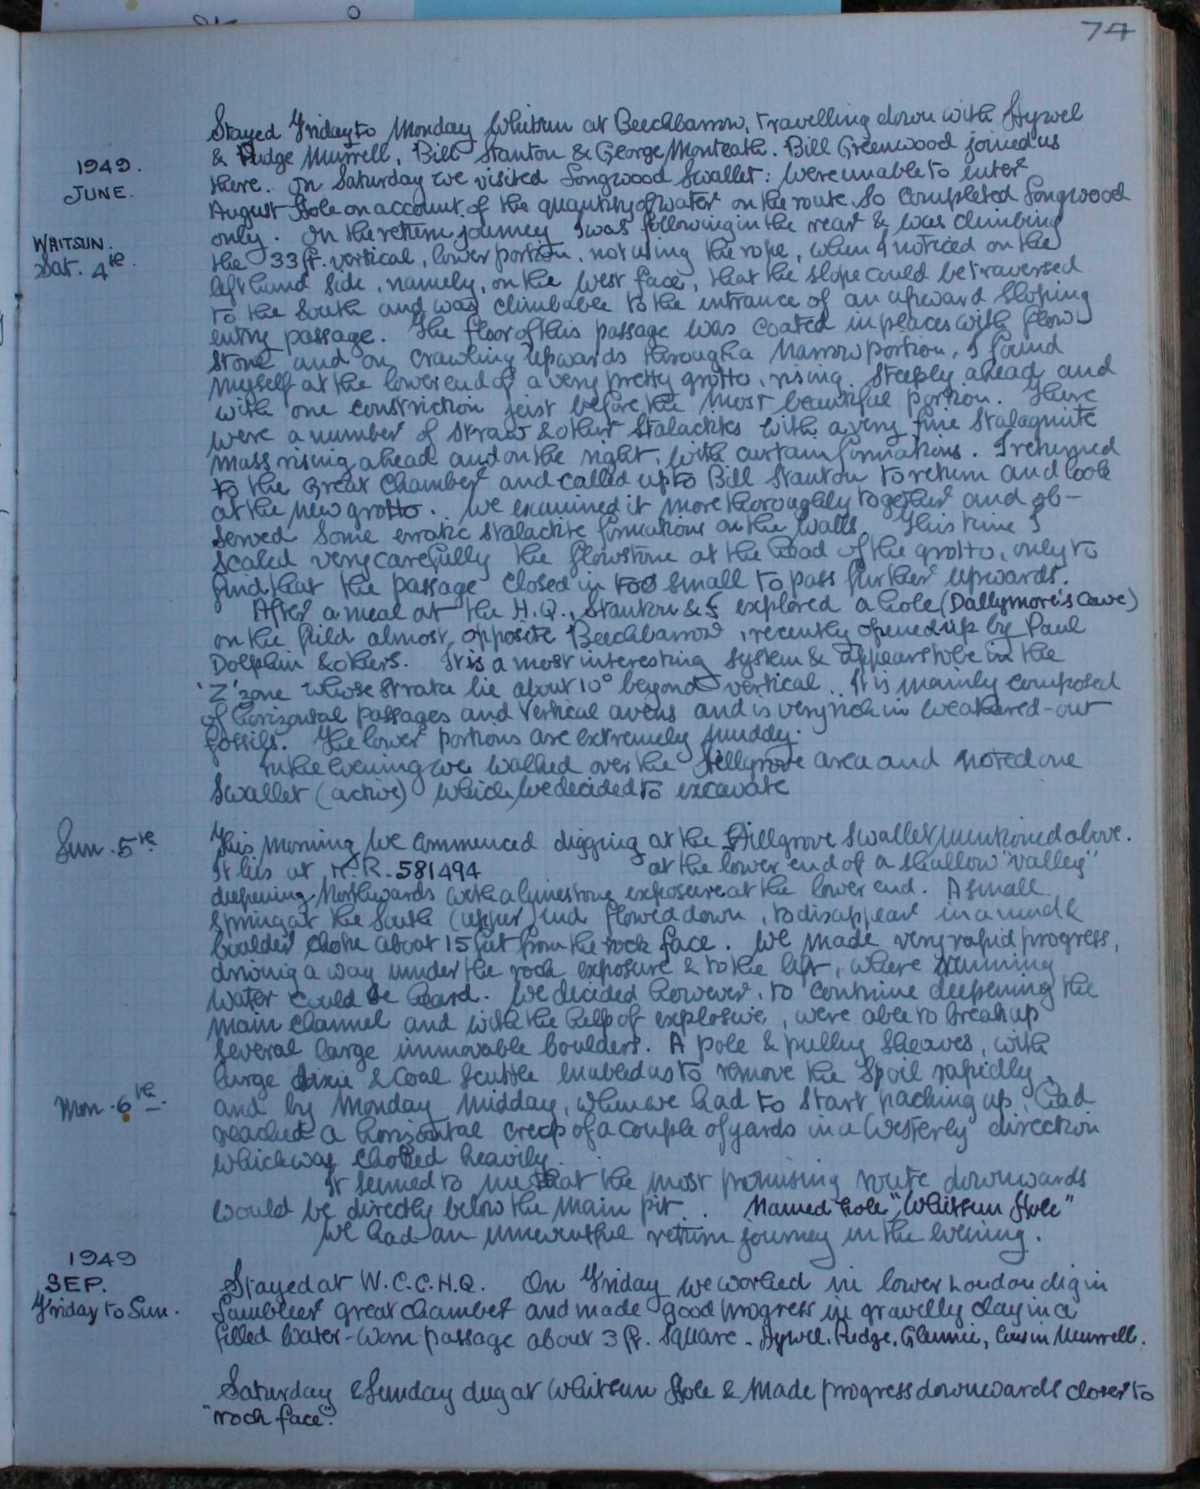 74
Stayed Friday to Monday Whitsun at Beechbarrow, travelling down with Hywel
1949. & Pudge Murrell, Bill Stanton & George Monteath. Bill Greenwood joined us
JUNE. there. On Saturday we visited Longwood Swallet: were unable to enter
August Hole on account of the quantity of water on the route. So completed Longwood
WHITSUN. only. On the return journey I was following in the rear & was climbing
Sat. 4th. the 33 ft. vertical, lower portion, not using the rope, when I noticed on the
left hand side, namely, on the West face, that the slope could be traversed
to the South and was climbable to the entrance of an upward sloping
entry passage. The floor of this passage was coated in places with flow
stone and on crawling upwards through a narrow portion, I found
myself at the lower end of a very pretty grotto, rising steeply ahead and
with one constriction just before the most beautiful portion. There
were a number of straw & other stalactites with a very fine stalagmite
mass rising ahead and on the right, with curtain formations. I returned
to the Great Chamber and called up to Bill Stanton to return and look
at the new grotto. We examined it more thoroughly together and ob-
served some erratic stalactite formations on the walls. This time I
scaled very carefully the flowstone at the head of the grotto, only to
find that the passage closed in too small to pass further upwards.
After a meal at the H.Q., Stanton & I explored a hole (Dallymore's Cave)
on the field almost opposite Beechbarrow, recently opened up by Paul
Dolphin & others. It is a most interesting system & appears to be in the
'Z' zone whose strata lie about 10° beyond vertical. It is mainly composed
of horizontal passages and vertical avens and is very rich in weathered-out
fossils. The lower portions are extremely muddy.
In the evening we walked over the Hillgrove area and noted one
swallet (active) which we decided to excavate
Sun. 5th This morning we commenced digging at the Hillgrove Swallet mentioned above.
It lies at M.R. 581494 at the lower end of a shallow "valley"
deepening Northwards with a limestone exposure at the lower end. A small
spring at the South (upper) end flowed down, to disappear in a mud &
boulder choke about 15 feet from the rock face. We made very rapid progress,
driving a way under the rock exposure & to the left, where running
water could be heard. We decided however, to continue deepening the
main channel and with the help of explosive, were able to break up
several large immovable boulders. A pole & pulley sheaves, with
large dixie & coal scuttle enabled us to remove the spoil rapidly
Mon. 6th. and by Monday midday, when we had to start packing up, had
reached a horizontal creep of a couple of yards in a Westerly direction
which was choked heavily.
It seemed to me that the most promising route downwards
would be directly below the main pit. Named hole "Whitsun Hole"
We had an uneventful return journey in the evening.
1949
SEP. Stayed at W.C.C.H.Q. On Friday we worked in lower London dig in
Friday to Sun. Lamb Leer great chamber and made good progress in gravelly clay in a
filled water-worn passage about 3 ft. square. Hywel, Pudge, Glennie, Murrell.
Saturday & Sunday dug at Whitsun Hole & made progress downwards closer to
"rock face".